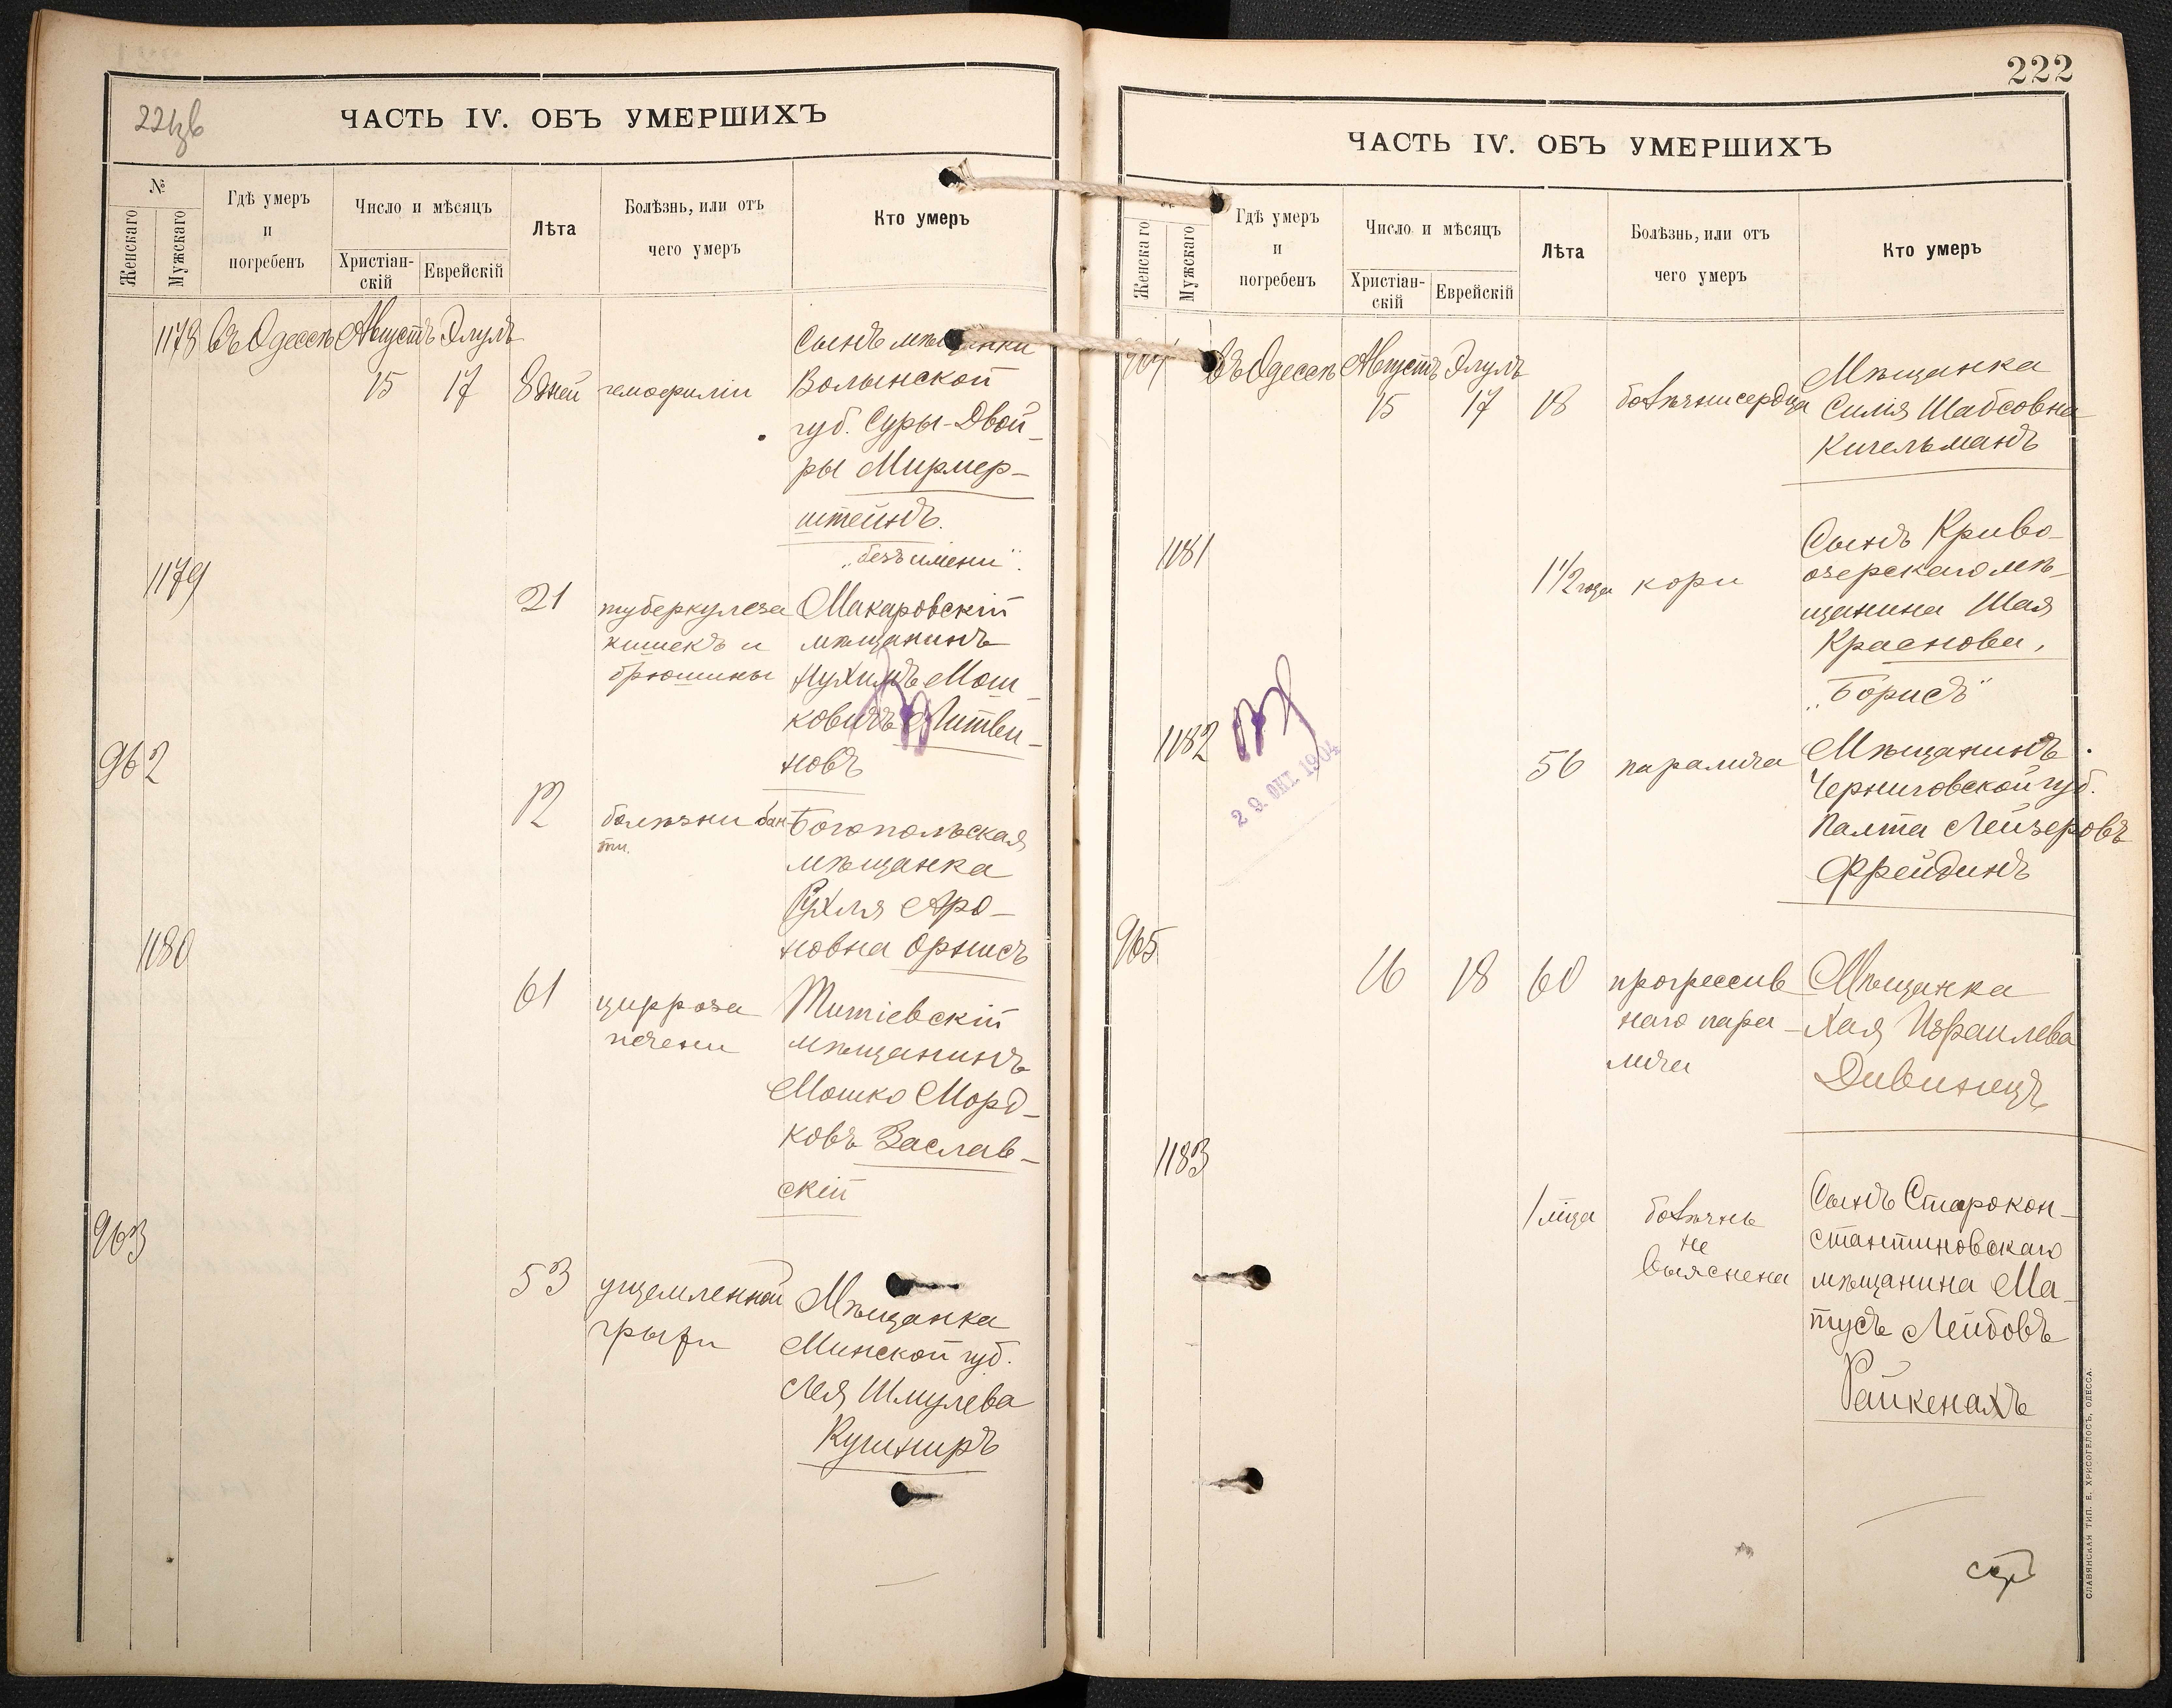 ЧАСТЬ IV. ОБЪ УМЕРШИХЪ
№
Женскаго
Мужскаго
Гдѣ умеръ
и
погребенъ
Число и мѣсяцъ
Христіан-
скій
Еврейскій
Лѣта
Болѣзнь, или отъ
чего умеръ
Кто умеръ
1178 Въ Одессѣ Августъ Элулъ
15 17 8 дней гемофиліи
Сынъ мѣщанки
Волынской
губ. Суры-Двой-
ры Мирмер-
штейнъ.
„безъ имени".
1179
21 туберкулеза
кишекъ и
брюшины
Макаровскій
мѣщанинъ
Нухимъ Мош-
ковичъ Литви-
новъ
962
12 болѣзни
Богопольская
мѣщанка
Рухля Аро-
новна Орнисъ
1180
61 цирроза
печени
Титіевскій
мѣщанинъ
Мошко Морд-
ковъ Заслав-
скій
963
53 ущемленной
грыжи
Мѣщанка
Минской губ.
Лея Шмулева
Кушниръ
222
ЧАСТЬ IV. ОБЪ УМЕРШИХЪ
Женскаго
Мужскаго
Гдѣ умеръ
и
погребенъ
Число и мѣсяцъ
Христіан-
скій
Еврейскій
Лѣта
Болѣзнь, или отъ
чего умеръ
Кто умеръ
964 Въ Одессѣ Августъ Элулъ
15 17 18 болѣзни сердца
Мѣщанка
Силя Шабсовна
Кигельманъ
1181
1 1/2 года кори
Сынъ Криво-
озерскаго мѣ-
щанина Шая
Краснова,
„Борисъ"
1182
56 паралича
Мѣщанинъ
Черниговской губ.
Палта Лейзеровъ
Фрейдинъ
29 ОКТ. 1904
965
16 18 60 прогрессив
наго пара-
лича
Мѣщанка
Хая Израилева
Дивинецъ
1183
1 мца болѣзнь
не
выяснена
Сынъ Старокон-
стантиновскаго
мѣщанина Ма-
тусъ Лейбовъ
Райкенахъ
СЛАВЯНСКАЯ ТИП. Е. ХРИСОГЕЛОСЪ, ОДЕССА.